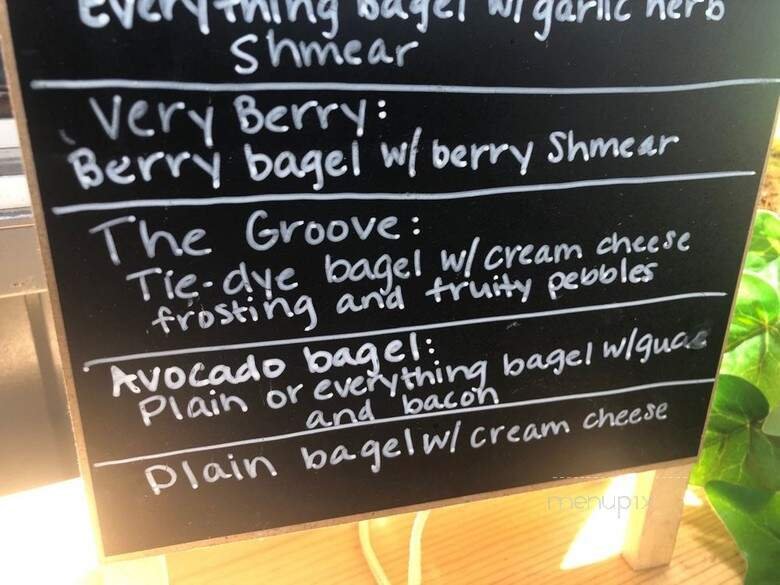 Everything bagel w/ garlic herb
Shmear
Very Berry:
Berry bagel w/ berry Shmear
The Groove:
Tie-dye bagel w/ cream cheese
frosting and fruity pebbles
Avocado bagel:
Plain or everything bagel w/guac
and bacon
Plain bagel w/ cream cheese
menupix